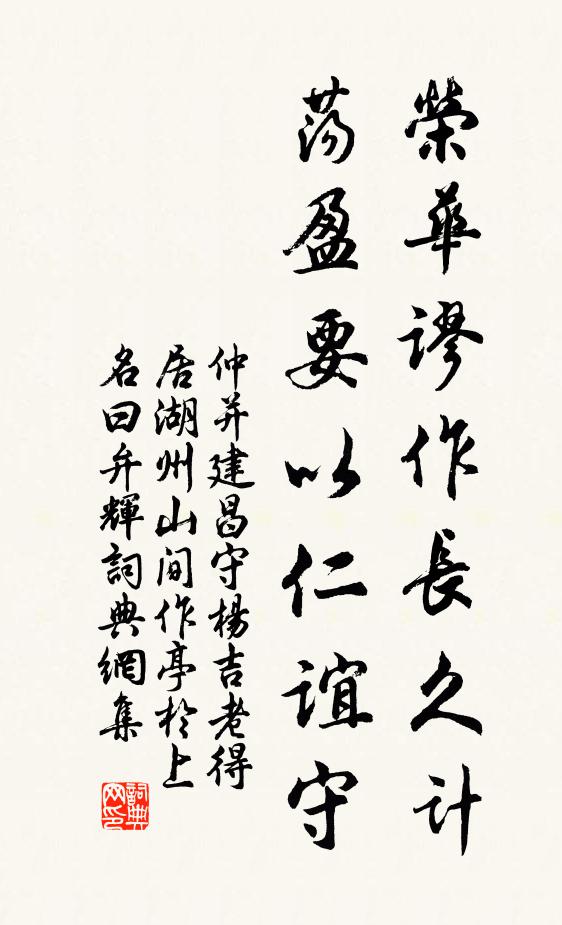 榮華謬作長久计
荡盈要以仁谊守
仲并建昌守楊吉老得
居湖州山间作亭於上
名曰弁輝詞典網集
詞典
网印